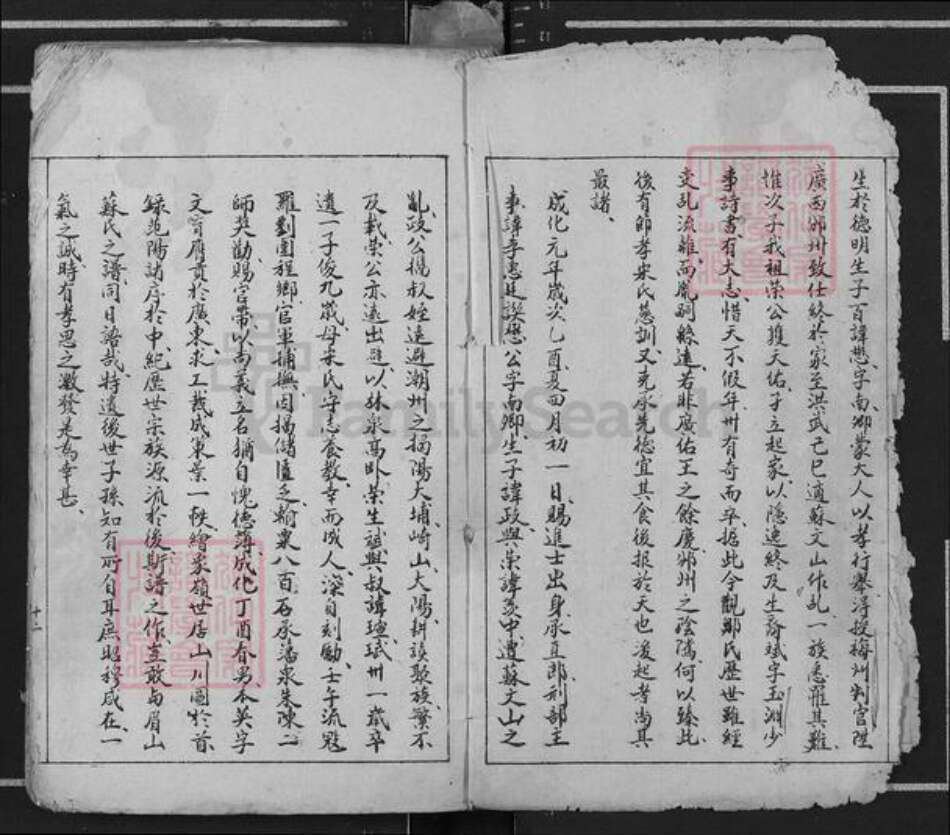 生於德明生子百諱懋字南鄉蒙大人以孝行舉淂授梅州判官陞
廣西邠州致仕終於家至洪武己巳適蘇文山作乱一族悉罹其難
惟次子我祖榮公獲天佑子立起家以隱逸終及生斎斌字玉淵少
事詩書有大志惜天不假年卅有奇而卒据此今觀鄒氏歷世雖經
变乱流離而胤嗣綿遠若非廣佑王之餘慶邠州之陰隲何以臻此
後有節孝宋氏慈訓又克承先德宜其食後报於天也後起者尚其
最諸
成化元年歲次乙酉夏四月初一日賜進士出身承直郎刑部主
事諱李忠廷譔懋公字南鄉生子諱政與榮諱英中遭蘇文山之
亂政公搗叔姪遠避潮州之揭陽大埔崎山大陽耕讀聚族繁不
及载榮公亦遠出避以林泉高卧榮生斌與叔諱瓊珷卅一歲卒
遺一子俊九歲母宋氏守志養教幸而成人深自刻勵壬午流寇
羅劉圍程鄉官軍捕撫因揭儲匱乏輸粟八百石承潘泉朱陳二
師奨勸賜官帶以尚義立名猶自愧德薄成化丁酉春男本英字
文膺貢於廣東求工裁成東業一帙繪家嶺世居山川圖於首
録范陽諸序於中紀歷世宗族源流於後斯譜之作豈敢与眉山
蘇氏之譜同日語哉特遺後世子孫知有所自耳庶昭穆咸在一
氣之誠時有孝思之激發是為幸甚
十二
FamilySearch